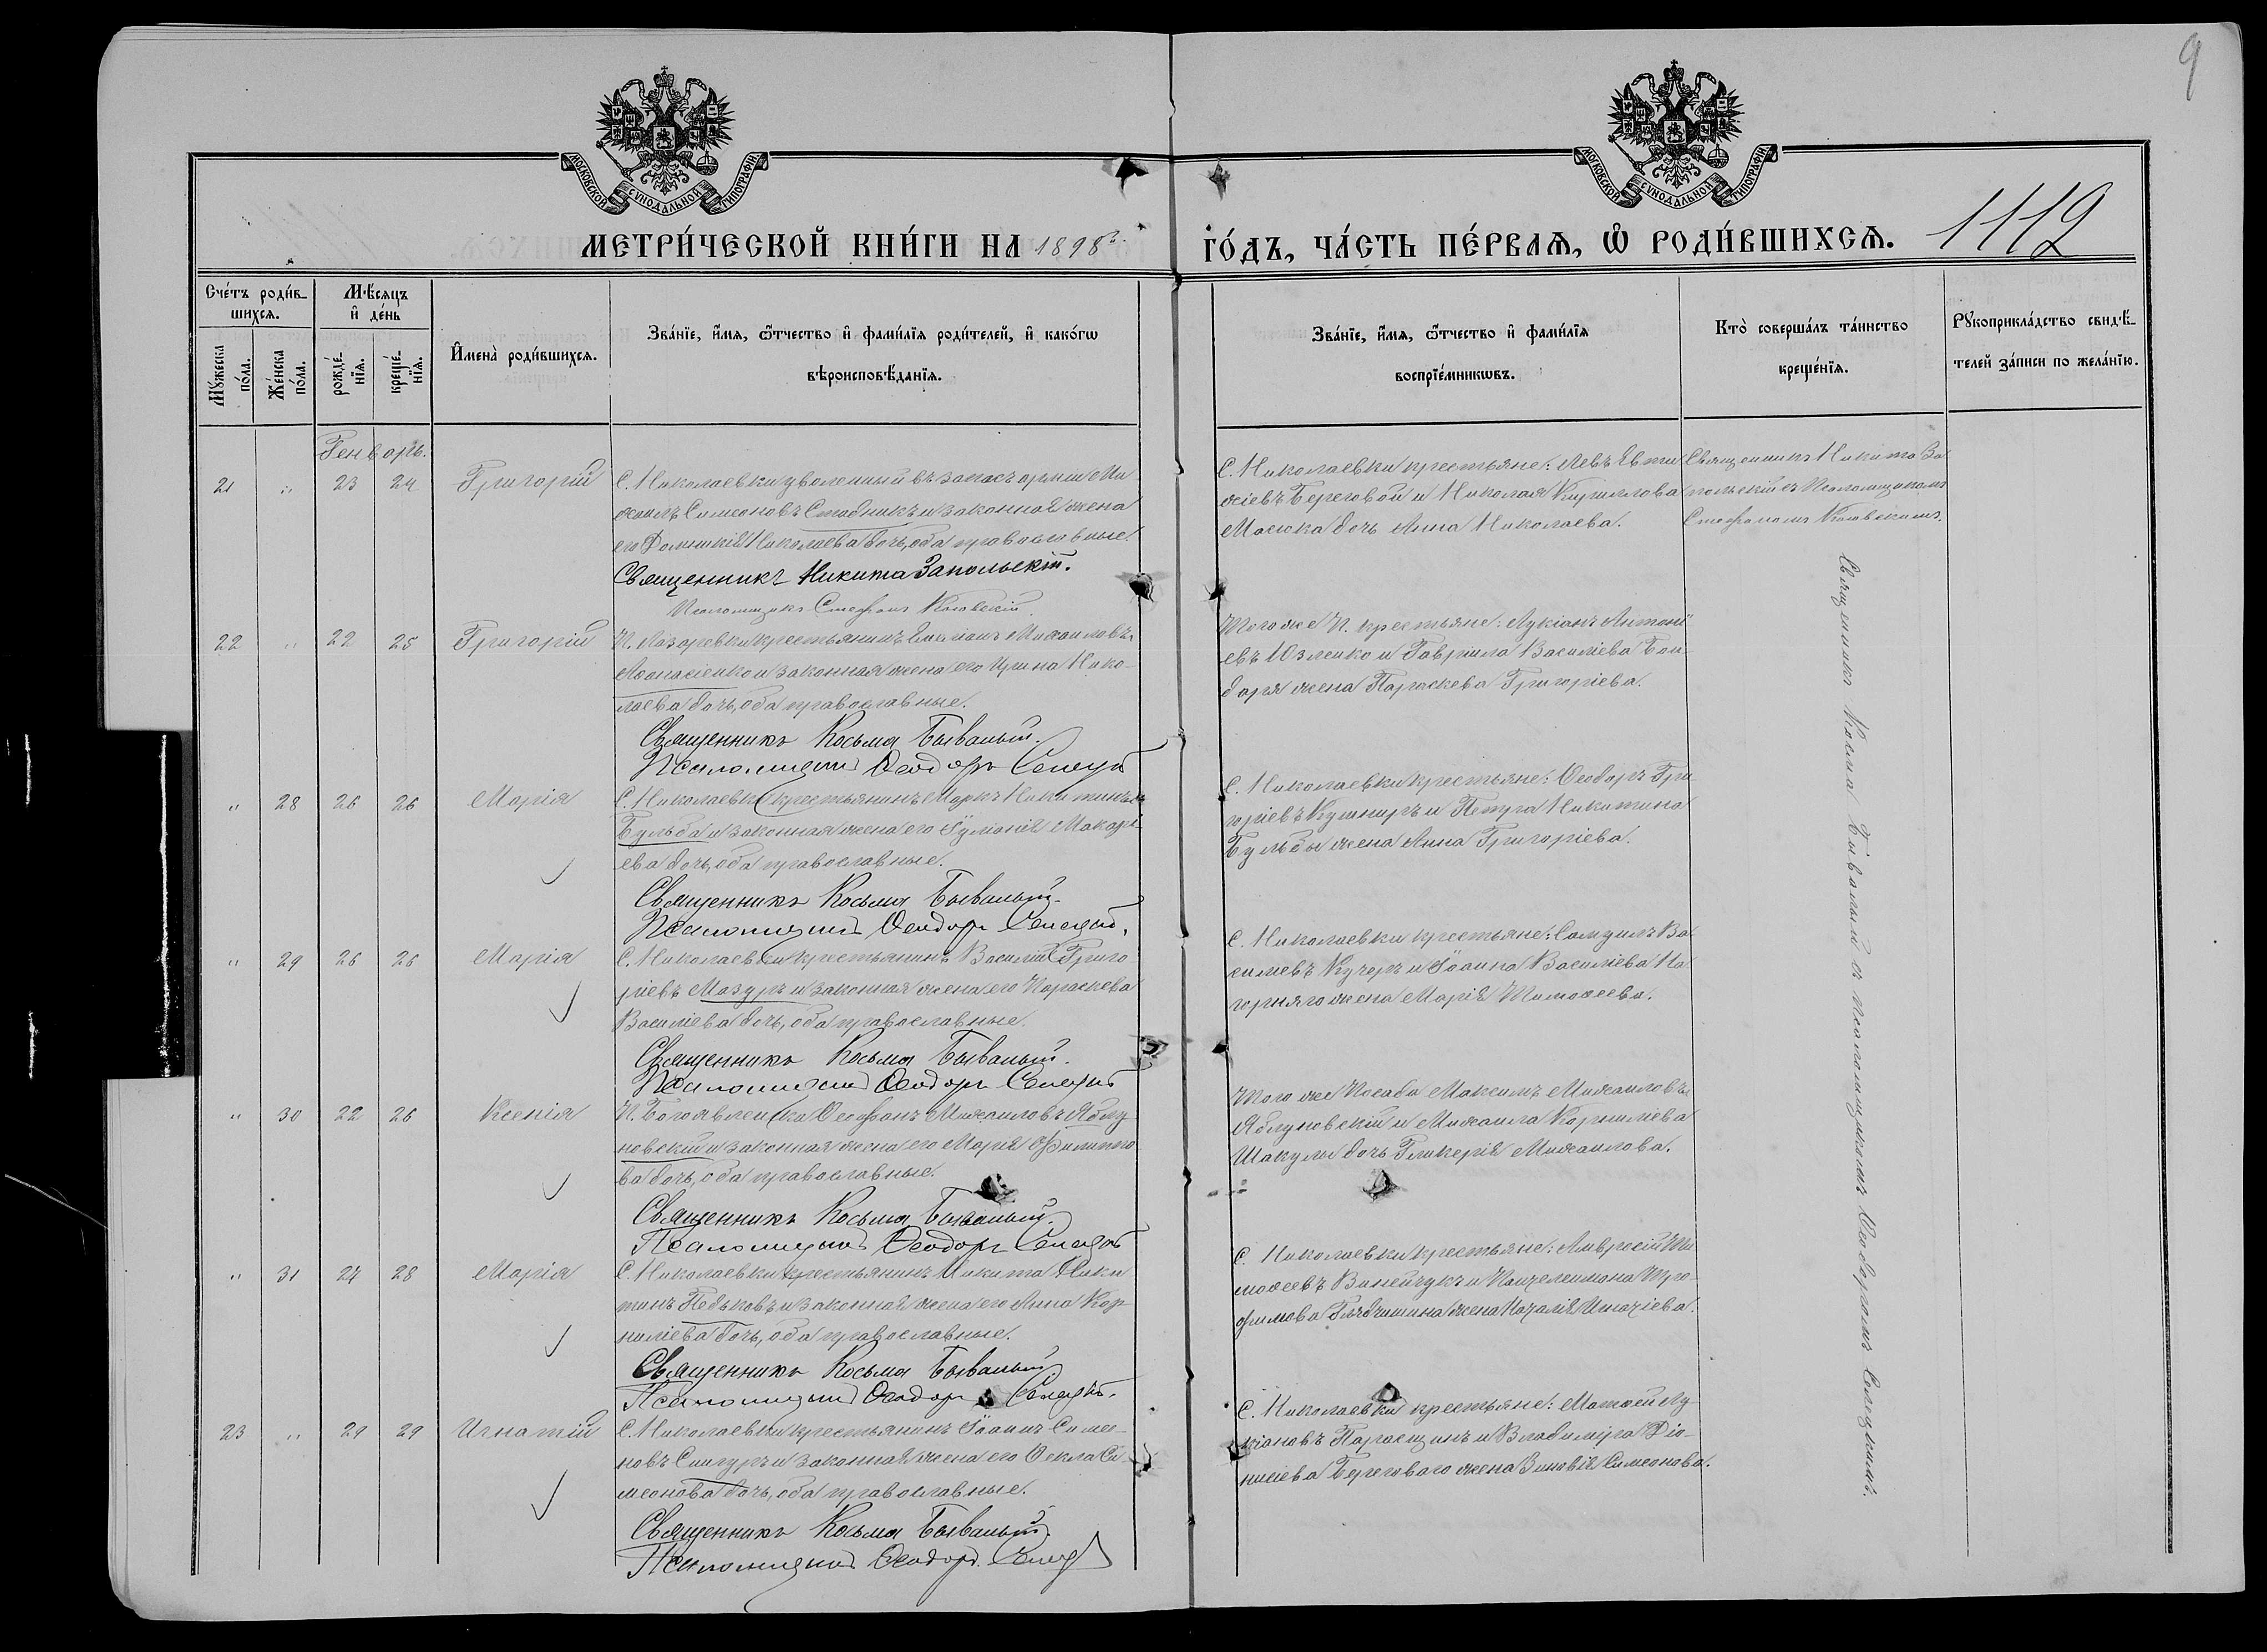 9
МОСКОВСКОЙ СѴНОДАЛЬНОЙ ТИПОГРАФІИ
МОСКОВСКОЙ СѴНОДАЛЬНОЙ ТИПОГРАФІИ
МЕТРИ́ЧЕСКОЙ КНИ́ГИ НА 1898
ГО́ДЪ, ЧА́СТЬ ПЕ́РВАѦ, Ѽ РОДИ́ВШИХСѦ. 1112
Сче́тъ роди́в-
шихсѧ.
Мꙋ́жеска по́ла.
Же́нска по́ла.
Мѣ́сѧцъ и҆ де́нь
рожде́-нїѧ.
креще́-нїѧ.
И҆мена̀ роди́вшихсѧ.
Зва́нїе, и҆́мѧ, ѻ҆́тчество и҆ фами́лїѧ роди́телей, и҆ како́гѡ
вѣроисповѣ́данїѧ.
Зва́нїе, и҆́мѧ, ѻ҆́тчество и҆ фами́лїѧ
воспрїе́мникѡвъ.
Кто̀ соверша́лъ та́инство
креще́нїѧ.
Рꙋкоприкла́дство свидѣ́-
телей за́писи по жела́нїю.
Генварь.
21 " 23 24 Григорій
С. Николаевки уволенный въ запасъ арміи Ми
хаилъ Симеоновъ Стадникъ и законная жена
его Домникія Николаева дочь, оба православные.
Священникъ Никита Запольскій.
Псаломщикъ Стефанъ
С. Николаевки крестьяне: Левъ Евти
хіевъ Береговой и Николая Кириллова
Масюка дочь Анна Николаева.
Священникъ Никита За
польскій съ Псаломщикомъ
Стефаномъ
22 " 22 25 Григорій
П. Лазаревки крестьянинъ Михаиловъ
Афанасіенко и законная жена его Ирина Нико-
лаева дочь, оба православные.
Священникъ Косьма Бывалый.
Псаломщикъ Ѳеодоръ Селецкій
Того же П. крестьяне: Лукіанъ Антоні
евъ Юзленко и Гавріила Василіева Бон-
даря жена Параскева Григоріева.
" 28 26 26 Марія
С. Николаевки крестьянинъ Маркъ Никитинъ
Бульба и законная жена его Іуліанія Макарі
ева дочь, оба православные.
Священникъ Косьма Бывалый.
Псаломщикъ Ѳеодоръ Селецкій.
С. Николаевки крестьяне: Ѳеодоръ Гри
горіевъ Кушниръ и Петра Никитина
Бульбы жена Анна Григоріева.
" 29 26 26 Марія
С. Николаевки крестьянинъ Василій Григо
ріевъ Мазуръ и законная жена его Параскева
Василіева дочь, оба православные.
Священникъ Косьма Бывалый.
Псаломщикъ Ѳеодоръ Селецкій
С. Николаевки крестьяне: Самуилъ Ва
силіевъ Кучеръ и Іоанна Василіева На
горняго жена Марія Тимоѳеева.
" 30 22 26 Ксенія
П. Ѳеофанъ Михаиловъ Яблу
новскій и законная жена его Марія Филиппо
ва дочь, оба православные.
Священникъ Косьма Бывалый.
Псаломщикъ Ѳеодоръ Селецкій
Того же Посада Максимъ Михаиловъ
Яблуновскій и Михаила Корниліева
Шакулы дочь Гликерія Михаилова.
" 31 24 28 Марія
С. Николаевки крестьянинъ Никита Ники
тинъ Педьковъ и законная жена его Анна Кор
ниліева дочь, оба православные.
Священникъ Косьма Бывалый
Псаломщикъ Ѳеодоръ Селецкій.
С. Николаевки крестьяне: Амвросій Ти
моѳеевъ Винейчукъ и Пантелеимона Тро-
фимова жена Наталія Игнатіева.
23 " 29 29 Игнатій
С. Николаевки крестьянинъ Іоаннъ Симео-
новъ Снигуръ и законная жена его Ѳекла Си
меонова дочь, оба православные.
Священникъ Косьма Бывалый.
Псаломщикъ Ѳеодоръ Селецкій
С. Николаевки крестьяне: Матѳей Лу
кіановъ и Владиміра Діо-
нисіева Береговаго жена Зиновія Симеонова.
Священникъ Косьма Бывалый съ псаломщикомъ Ѳеодоромъ Селецкимъ.